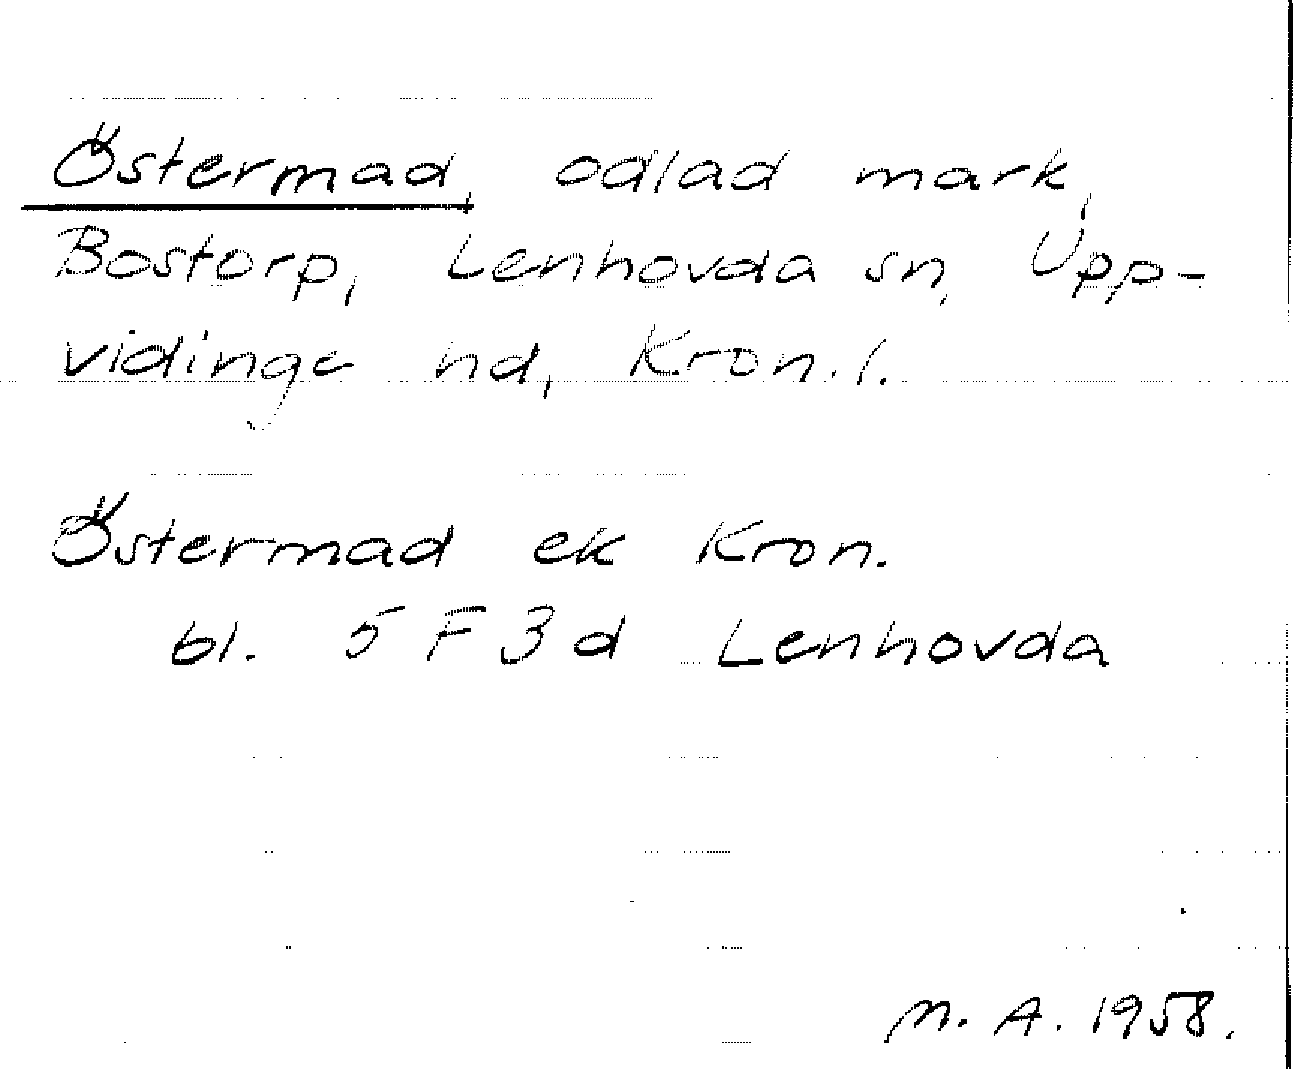 Östermad, odlad mark,
Bostorp, Lenhovda sn, Upp-
vidinge hd, Kron. l.
Östermad ek Kron.
bl. 5 F 3 d Lenhovda
M. A. 1958.